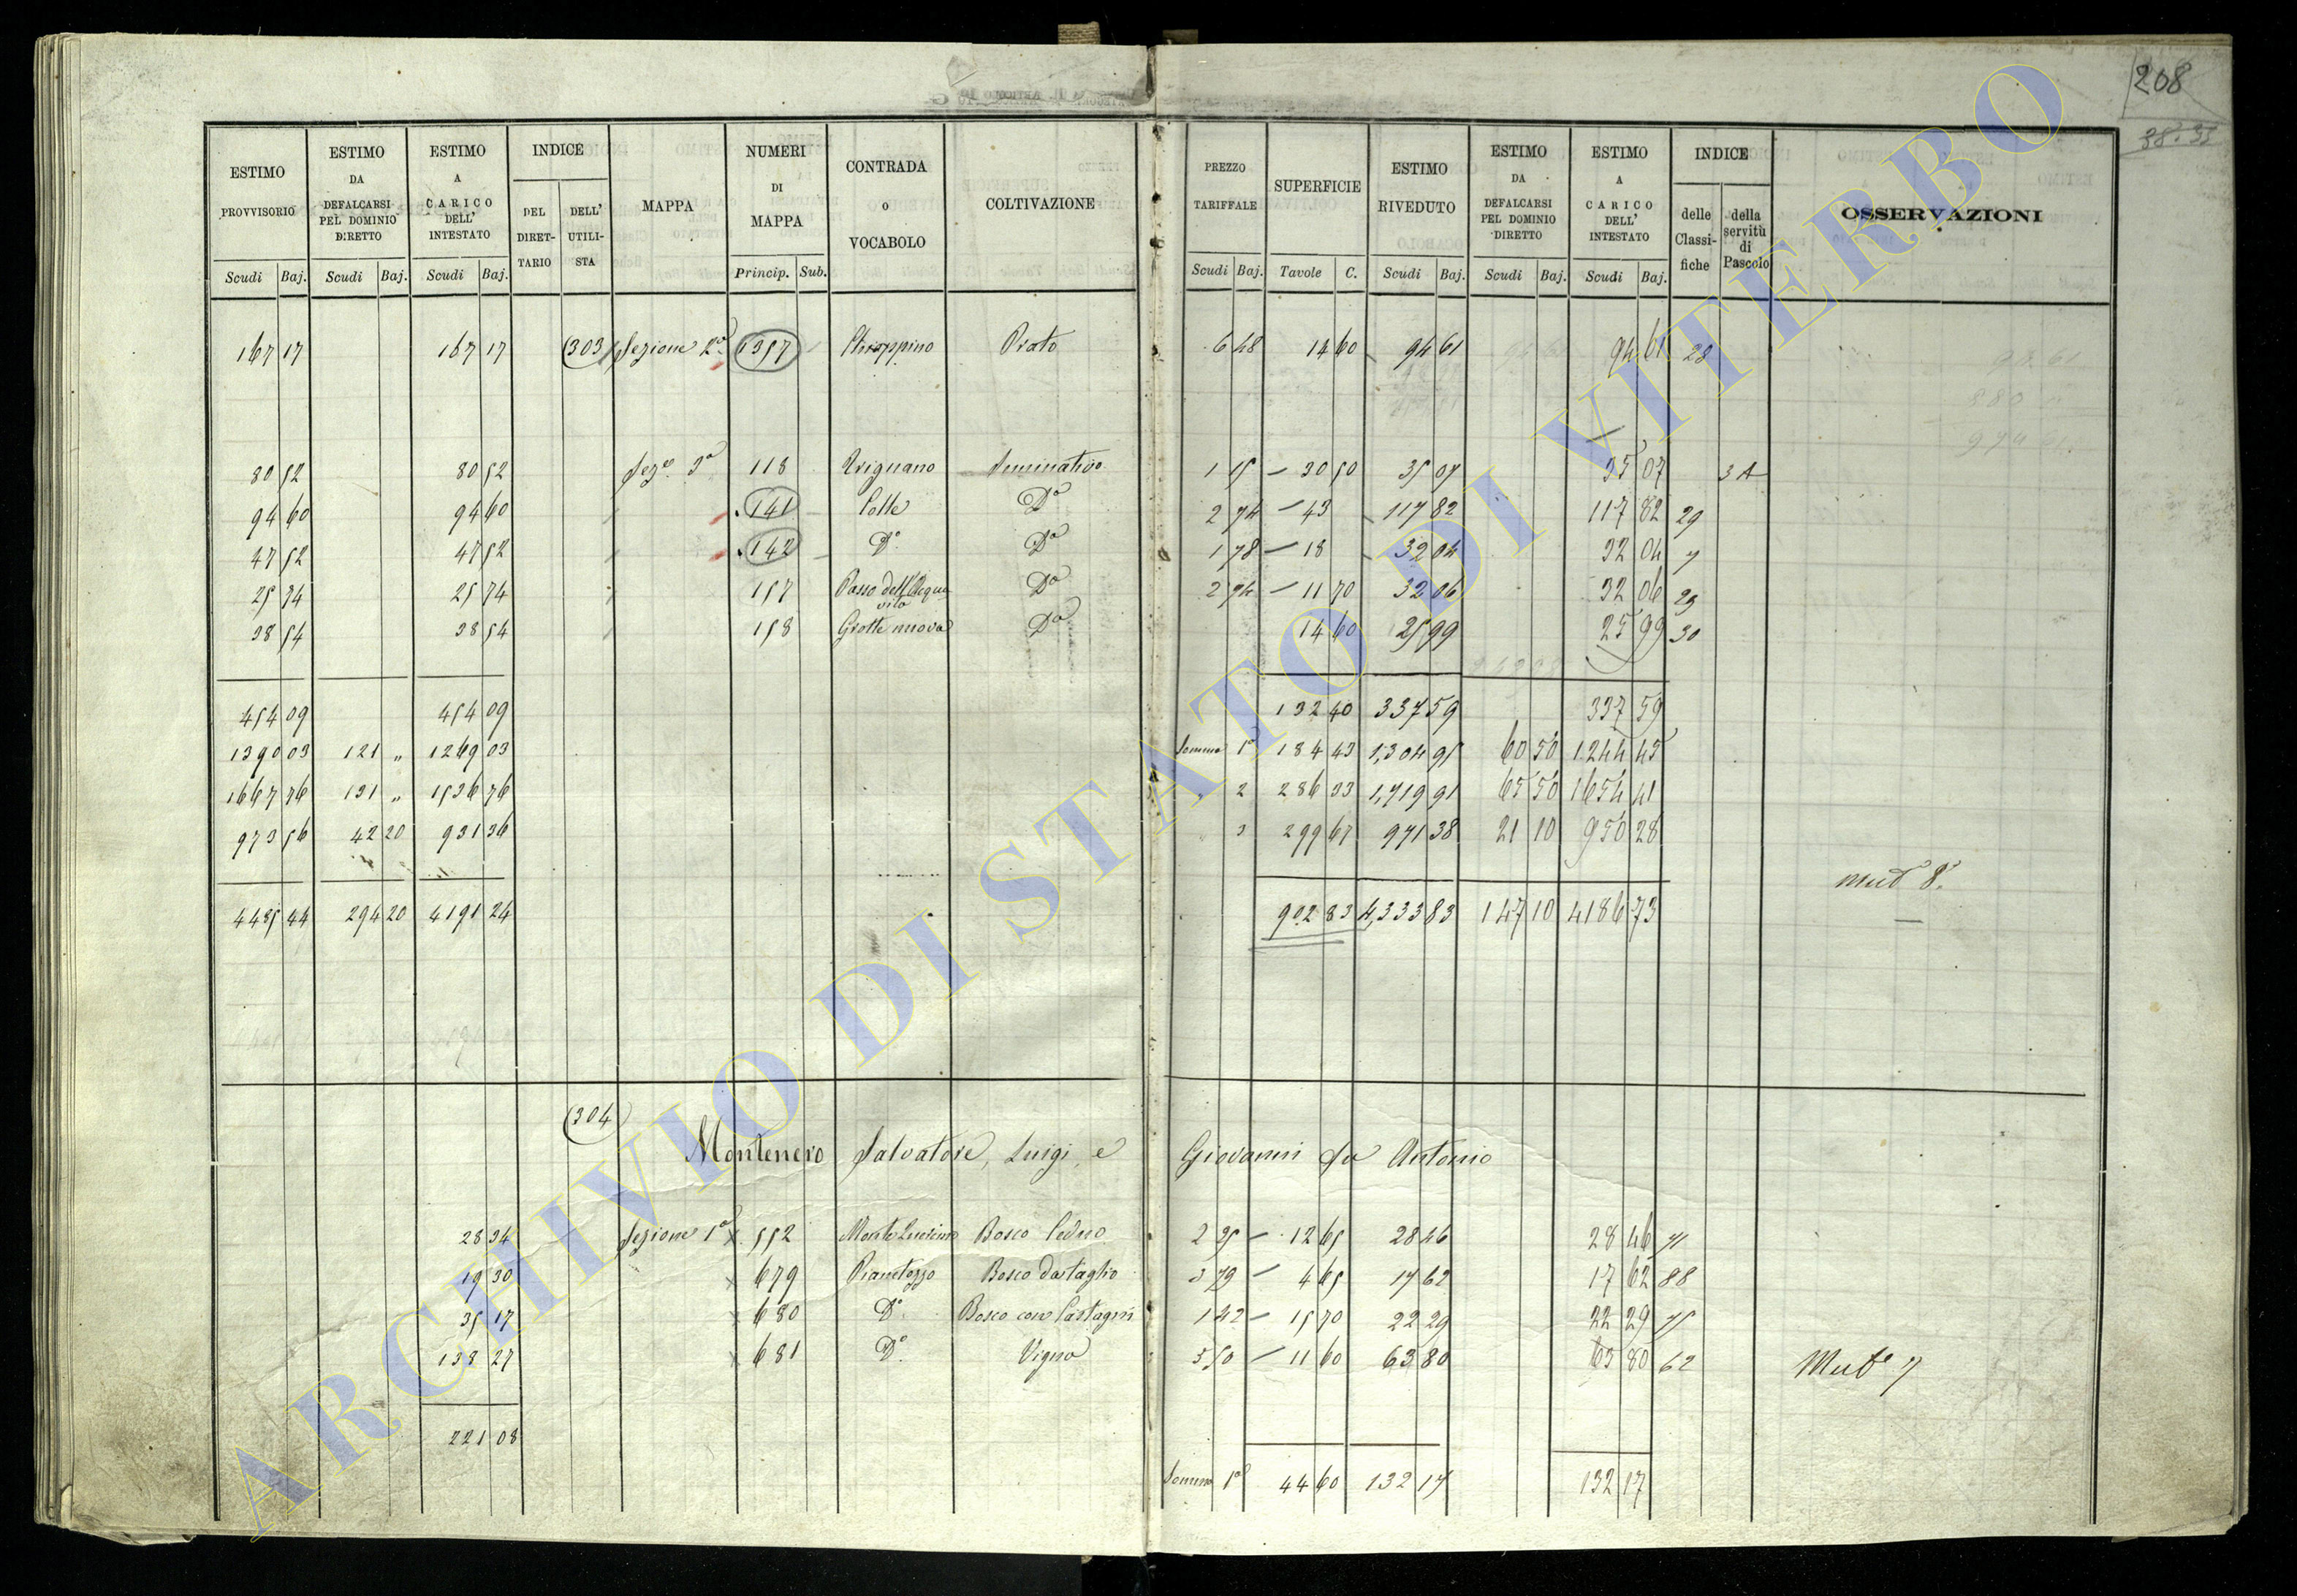 208
38.33
ESTIMO PROVVISORIO
ESTIMO DA DEFALCARSI PEL DOMINIO DIRETTO
ESTIMO A CARICO DELL' INTESTATO
INDICE
DEL DIRETTARIO
DELL' UTILISTA
MAPPA
NUMERI DI MAPPA
CONTRADA o VOCABOLO
COLTIVAZIONE
PREZZO TARIFFALE
SUPERFICIE
ESTIMO RIVEDUTO
ESTIMO DA DEFALCARSI PEL DOMINIO DIRETTO
ESTIMO A CARICO DELL' INTESTATO
INDICE
delle Classifiche
della servitù di Pascolo
OSSERVAZIONI
Scudi Baj. Scudi Baj. Scudi Baj. Princip. Sub. Scudi Baj. Tavole C. Scudi Baj. Scudi Baj. Scudi Baj.
167 17 167 17 (303) Sezione 2a 1357 Prato 6 48 14 60 94 61 94 61 28
80 52 80 52 Seze 3a 118 Vrignano Seminativo 1 15 30 50 35 07 35 07 3 A
94 60 94 60 141 Colle Do 2 74 43 117 82 117 82 29
47 52 47 52 142 Do Do 1 78 18 32 04 32 04 7
25 74 25 74 157 Passo dell'Acqua vita Do 2 74 11 70 32 06 32 06 29
38 54 38 54 158 Grotte nuova Do 14 60 25 99 25 99 30
454 09 454 09 132 40 337 59 337 59
1390 03 121 „ 1269 03 Somma 1a 184 43 1,304 95 60 50 1244 45
1667 76 131 „ 1536 76 " 2 286 33 1,719 91 65 50 1654 41
973 56 42 20 931 36 " 3 299 67 971 38 21 10 950 28
mut 8.
4485 44 294 20 4191 24 902 83 4,333 83 147 10 4186 73
(304)
Montenero Salvatore, Luigi, e Giovanni fu Antonio
28 34 Sezione 1a 552 Monte Luciano Bosco Ceduo 2 25 12 65 28 46 28 46 71
19 30 679 Pianetozzo Bosco da taglio 3 79 4 65 17 62 17 62 88
35 17 680 Do Bosco con Castagni 1 42 15 70 22 29 22 29 75
138 27 681 Do Vigna 5 50 11 60 63 80 63 80 62 Muta 7
221 08
Somma 1a 44 60 132 17 132 17
ARCHIVIO DI STATO DI VITERBO